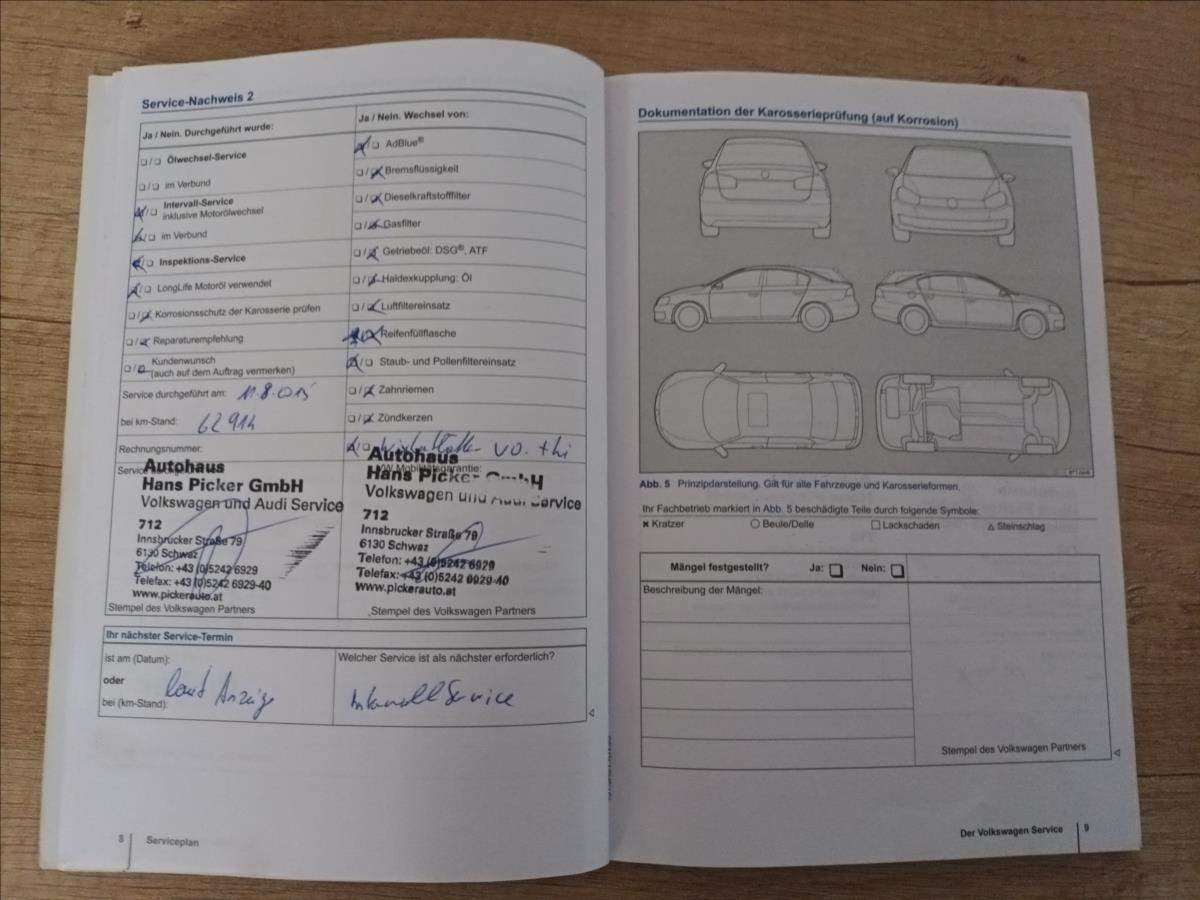 Service-Nachweis 2
Ja / Nein. Durchgeführt wurde:
❑/❑ Ölwechsel-Service
❑/❑ im Verbund
❑/❑ Intervall-Service
inklusive Motorölwechsel
❑/❑ im Verbund
❑/❑ Inspektions-Service
❑/❑ LongLife Motoröl verwendet
❑/❑ Korrosionsschutz der Karosserie prüfen
❑/❑ Reparaturempfehlung
❑/❑ Kundenwunsch
(auch auf dem Auftrag vermerken)
Service durchgeführt am: 11.8.015
bei km-Stand: 62914
Rechnungsnummer:
Autohaus
Hans Picker GmbH
Volkswagen und Audi Service
712
Innsbrucker Straße 79
6130 Schwaz
Telefon: +43 (0)5242 6929
Telefax: +43 (0)5242 6929-40
www.pickerauto.at
Stempel des Volkswagen Partners
Ja / Nein. Wechsel von:
❑/❑ AdBlue®
❑/❑ Bremsflüssigkeit
❑/❑ Dieselkraftstofffilter
❑/❑ Gasfilter
❑/❑ Getriebeöl: DSG®, ATF
❑/❑ Haldexkupplung: Öl
❑/❑ Luftfiltereinsatz
❑/❑ Reifenfüllflasche
❑/❑ Staub- und Pollenfiltereinsatz
❑/❑ Zahnriemen
❑/❑ Zündkerzen
❑/❑ vo. + hi
VW Mobilitätsgarantie:
Autohaus
Hans Picker GmbH
Volkswagen und Audi Service
712
Innsbrucker Straße 79
6130 Schwaz
Telefon: +43 (0)5242 6929
Telefax: +43 (0)5242 6929-40
www.pickerauto.at
Stempel des Volkswagen Partners
Ihr nächster Service-Termin
ist am (Datum):
oder
bei (km-Stand):
laut Anzeige
Welcher Service ist als nächster erforderlich?
Intervall Service
8 Serviceplan
Dokumentation der Karosserieprüfung (auf Korrosion)
Abb. 5 Prinzipdarstellung. Gilt für alle Fahrzeuge und Karosserieformen.
Ihr Fachbetrieb markiert in Abb. 5 beschädigte Teile durch folgende Symbole:
× Kratzer ○ Beule/Delle □ Lackschaden △ Steinschlag
Mängel festgestellt? Ja: ❑ Nein: ❑
Beschreibung der Mängel:
Stempel des Volkswagen Partners
Der Volkswagen Service 9